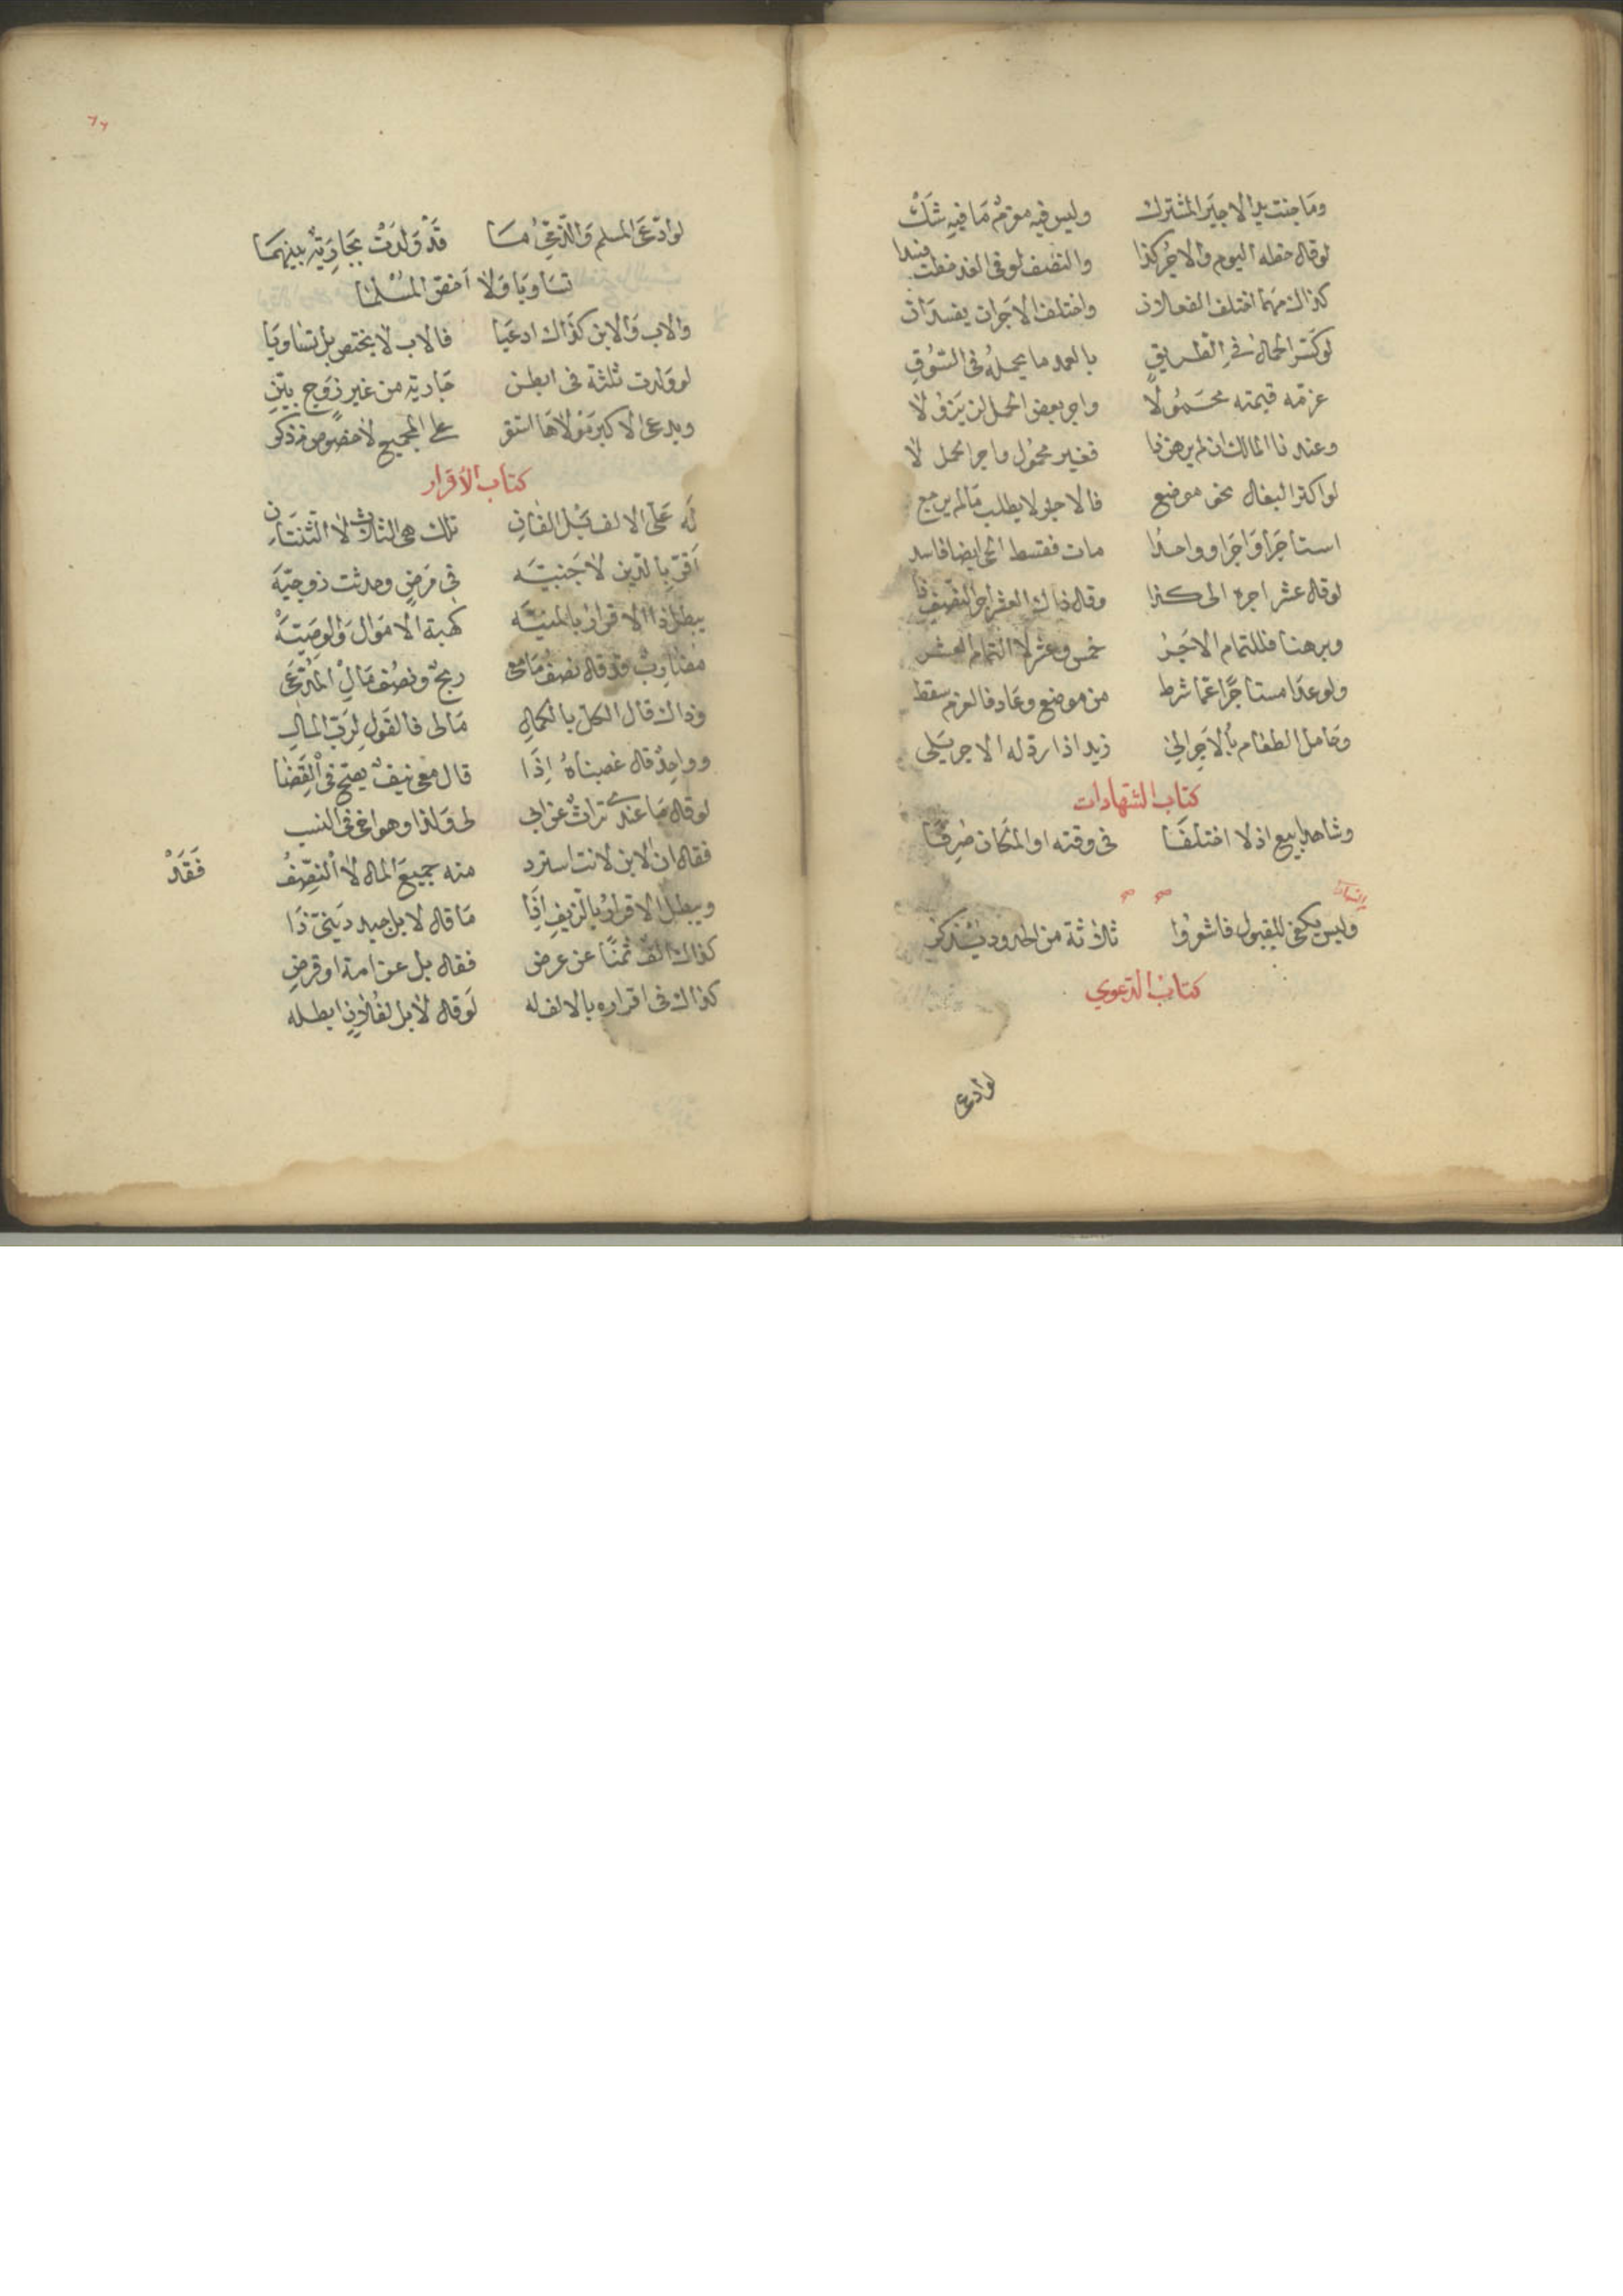 وما جنت يد الاجير المشترك وليس فيه موتم ما فيه شك
لو قال خطه اليوم والاجر كذا والنصف لو في الغد خطت
كذاك مهما اختلف الفعلان واختلف الاجرات يفسدان
لو كسر الحمال في الطريق بالعمد ما يحمله في السوق
غرمه قيمته محمولا واجر بعض الحمل لن يزولا
وعندنا المالك ان لم يرض ذا فغير محمول واجر الحمل لا
لو اكترا البغال نحو موضع فالاجر لا يطلب ما لم يرجع
استاجرا واجرا وواحدا مات فقسط الحي ايضا فاسد
لو قال عشر اجرة الى كذا وقال ذاك العشر اجر النصف ذا
وبرهنا فللتمام الاجر خمس وعشر لا التمام العشر
ولو عدا مستاجرا عما شرط من موضع وعاد فالغرم سقط
وحامل الطعام بالاجر الى زيد اذا رده له الاجر يلي
كتاب الشهادات
وشاهدا بيع اذا اختلفا في وقته او المكان
وليس يكفي للقبول فاشعروا ثلاثة من الحدود يذكر
كتاب الدعوي
لو ادعى
لو ادعى المسلم والذمي قد ولدت بجارية بينهما
تساويا ولا اخص المسلما
والاب والابن كذاك ادعيا فالاب لا يختص بل تساويا
لو ولدت ثلثة في ابطن جارية من غير زوج بين
ويدعى الاكبر مولاها استقر على الجميع لا خصوص من ذكر
كتاب الاقرار
له على الالف بل الفان تلك هي الثلاث لا الثنتان
اقر بالدين لاجنبيه في مرض وحدثت زوجيه
يبطل ذا الاقرار بالمنيه كهبة الاموال والوصيه
مضارب قد قال نصف ما معى ربح ونصف مال المدعى
وذاك قال الكل بالكمال مالى فالقول لرب المال
وواحد قال غصبناه اذا قال معى نيف يصح في القضا
لو قال ما عندي تراث عن ابي لى ولذا وهو اخي في النسب
فقال ان الابن لانت استرد منه جميع المال لا النصف فقد
ويبطل الاقرار بالزيف اذا ما قال لا بل جيد ديني ذا
كذاك الف ثمنا عن عرض فقال بل عن امة او قرض
كذاك في اقراره بالالف له لو قال لا بل لفلان ابطله